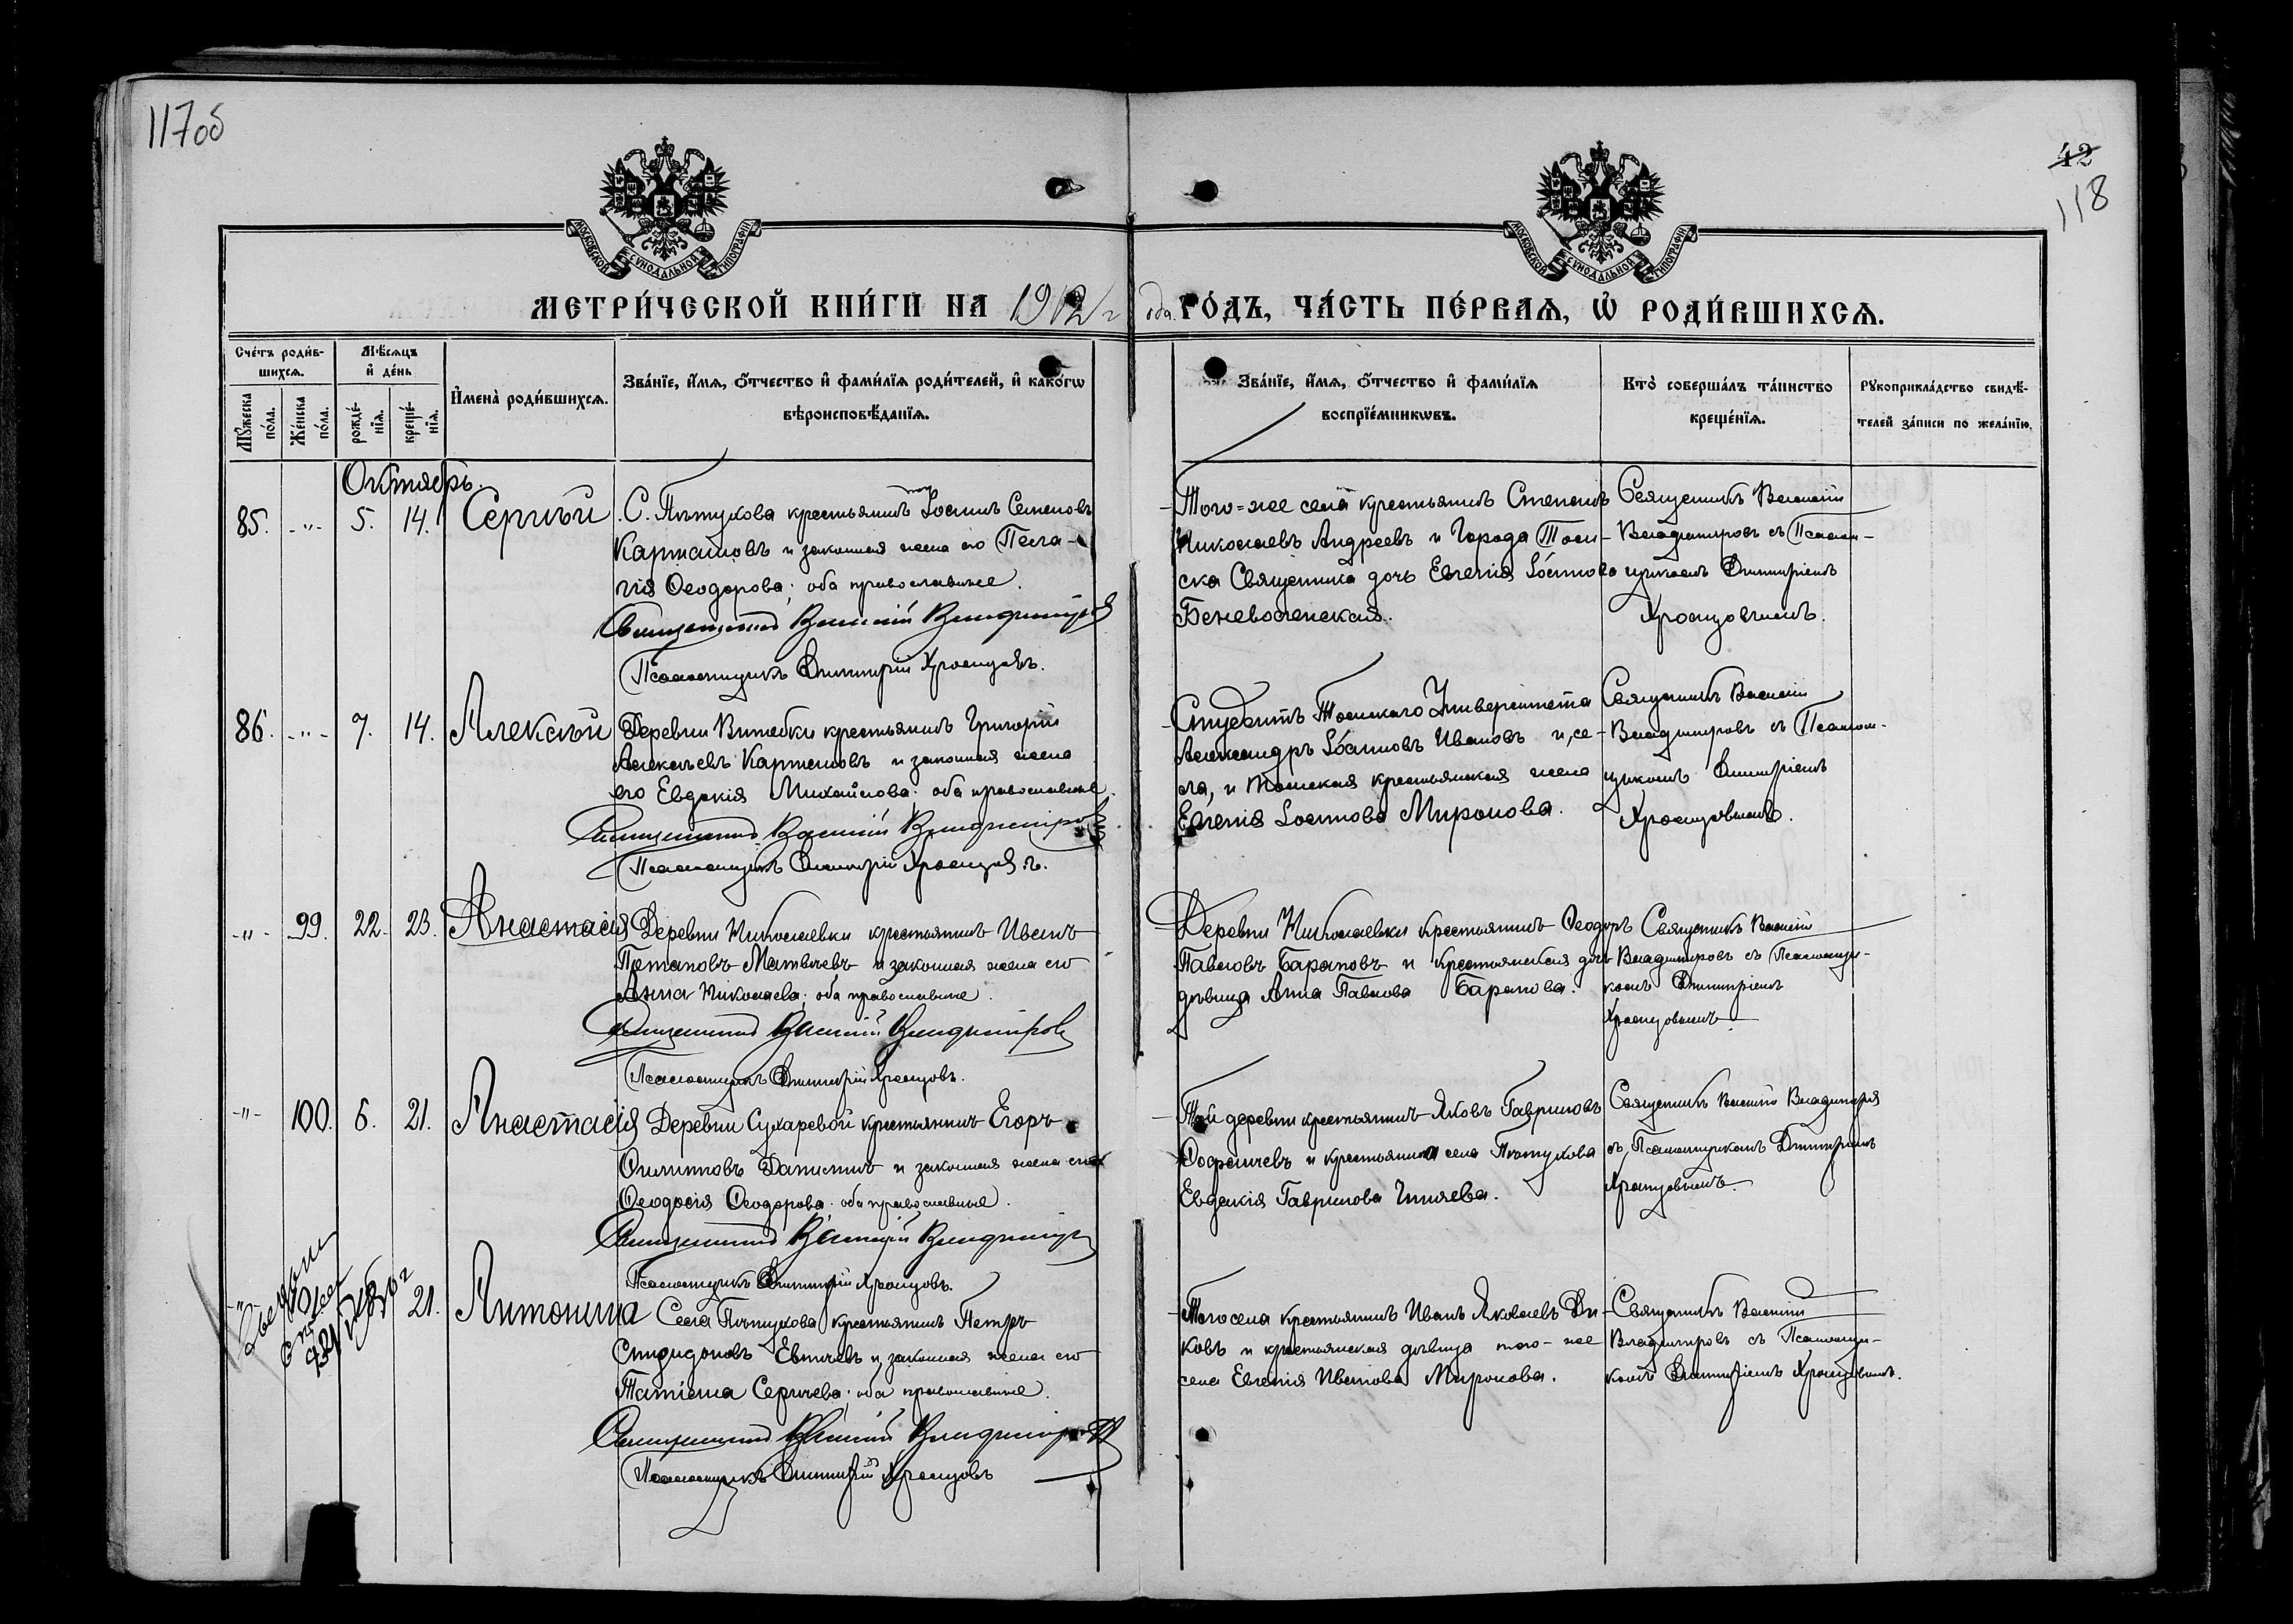 117об
42
118
МОСКОВСКОЙ СѴНОДАЛЬНОЙ ТИПОГРАФІИ
МОСКОВСКОЙ СѴНОДАЛЬНОЙ ТИПОГРАФІИ
МЕТРИ́ЧЕСКОЙ КНИ́ГИ НА 1912 года ГО́ДЪ, ЧА́СТЬ ПЕ́РВАѦ, Ѡ҆ РОДИ́ВШИХСѦ.
Сче́тъ роди́вшихсѧ.
Мꙋ́жеска по́ла.
Же́нска по́ла.
Мѣ́сѧцъ и҆ де́нь
рожде́нїѧ.
креще́нїѧ.
И҆мена̀ роди́вшихсѧ.
Зва́нїе, и҆́мѧ, ѻ҆́тчество и҆ фами́лїѧ роди́телей, и҆ како́гѡ
вѣроисповѣ́данїѧ.
Зва́нїе, и҆́мѧ, ѻ҆́тчество и҆ фами́лїѧ
воспрїе́мникѡвъ.
Кто̀ соверша́лъ та́инство
креще́нїѧ.
Рꙋкоприкла́дство свидѣ́телей за́писи по жела́нїю.
Октябрь.
85. -"- 5. 14. Сергѣй
С. Пѣтухова крестьянинъ Іоаннъ Семеновъ
Карташовъ и законная жена его Пела-
гія Ѳеодорова; оба православные.
Священникъ Василій Владиміровъ
Псаломщикъ Димитрій Храмцовъ.
Того-же села крестьянинъ Степанъ
Николаевъ Андреевъ и Города Том-
ска Священника дочь Евгенія Іоаннова
Беневоленская.
Священникъ Василій
Владиміровъ съ Псалом-
щикомъ Димитріемъ
Храмцовымъ.
86. -"- 7. 14. Алексѣй
Деревни Витебки крестьянинъ Григорій
Алексѣевъ Карташовъ и законная жена
его Евдокія Михайлова; оба православные.
Священникъ Василій Владиміровъ
Псаломщикъ Димитрій Храмцовъ.
Студентъ Томскаго Университета
Александръ Іоанновъ Ивановъ и, се-
ла, и Томская крестьянская жена
Евгенія Іоаннова Миронова.
Священникъ Василій
Владиміровъ съ Псалом-
щикомъ Димитріемъ
Храмцовымъ.
-"- 99. 22. 23. Анастасія
Деревни Николаевки крестьянинъ Иванъ
Матвѣевъ и законная жена его
Анна Николаева; оба православные.
Священникъ Василій Владиміровъ
Псаломщикъ Димитрій Храмцовъ.
Деревни Николаевки крестьянинъ Ѳеодоръ
Павловъ Барановъ и крестьянская дочь
дѣвица Анна Павлова Баранова.
Священникъ Василій
Владиміровъ съ Псаломщи-
комъ Димитріемъ
Храмцовымъ.
-"- 100. 6. 21. Анастасія
Деревни Сухаревой крестьянинъ Егоръ
Филипповъ Данилинъ и законная жена его
Ѳеодосія Ѳеодорова; оба православные.
Священникъ Василій Владиміровъ
Псаломщикъ Димитрій Храмцовъ.
Той деревни крестьянинъ Яковъ Гавриловъ
и крестьянка села Пѣтухова
Евдокія Гаврилова
Священникъ Василій Владиміровъ
съ Псаломщикомъ Димитріемъ
Храмцовымъ.
-"- 21. Антонина
Села Пѣтухова крестьянинъ Петръ
Спиридоновъ Евтѣевъ и законная жена его
Татіана Сергѣева; оба православные.
Священникъ Василій Владиміровъ
Псаломщикъ Димитрій Храмцовъ
Того села крестьянинъ Иванъ Яковлевъ Ди-
ковъ и крестьянская дѣвица того-же
села Евгенія Иванова Миронова.
Священникъ Василій
Владиміровъ съ Псаломщи-
комъ Димитріемъ Храмцовымъ.